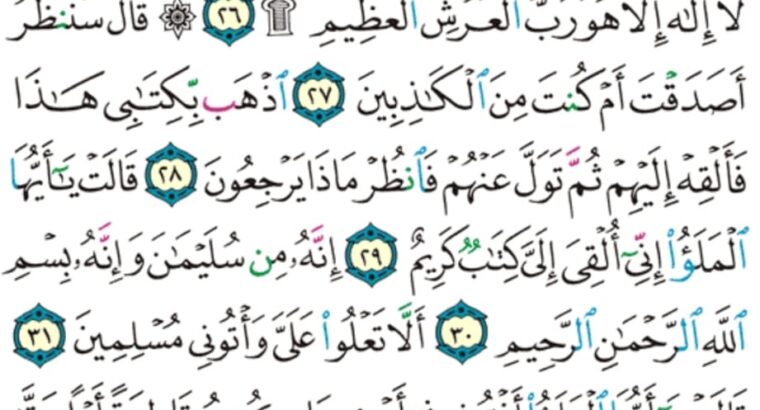 لَا إِلَٰهَ إِلَّا هُوَ رَبُّ ٱلْعَرْشِ ٱلْعَظِيمِ ۩ ٢٦ ۞ قَالَ سَنَنظُرُ
أَصَدَقْتَ أَمْ كُنتَ مِنَ ٱلْكَٰذِبِينَ ٢٧ ٱذْهَب بِّكِتَٰبِي هَٰذَا
فَأَلْقِهْ إِلَيْهِمْ ثُمَّ تَوَلَّ عَنْهُمْ فَٱنظُرْ مَاذَا يَرْجِعُونَ ٢٨ قَالَتْ يَٰٓأَيُّهَا
ٱلْمَلَؤُا۟ إِنِّيٓ أُلْقِيَ إِلَيَّ كِتَٰبٌ كَرِيمٌ ٢٩ إِنَّهُۥ مِن سُلَيْمَٰنَ وَإِنَّهُۥ بِسْمِ
ٱللَّهِ ٱلرَّحْمَٰنِ ٱلرَّحِيمِ ٣٠ أَلَّا تَعْلُوا۟ عَلَيَّ وَأْتُونِي مُسْلِمِينَ ٣١